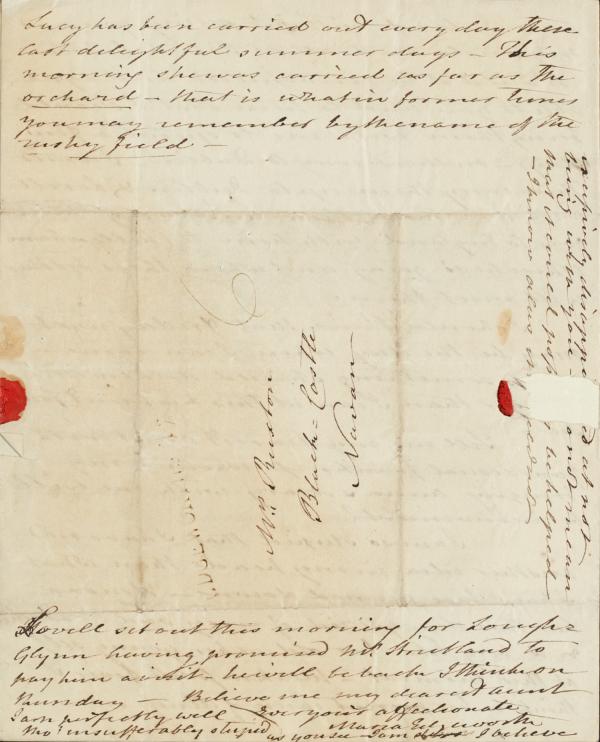 Lucy has been carried out every day these
last delightful summer days – This
morning she was carried as far as the
orchard – that is what in former times
you may remember by the name of the
rushy field –
at not
being with you – I do not mean
that it could be helped
– I know alas it
Mrs. Ruxton
Black-Castle
Navan
Lovell set out this morning for Lough=
Glynn having promised Mr Strickland to
pay him a visit – he will be back I think on
Thursday – Believe me my dearest aunt
I am perfectly well Ever your affectionate
tho' insufferably stupid Maria Edgeworth
as you see I am I believe